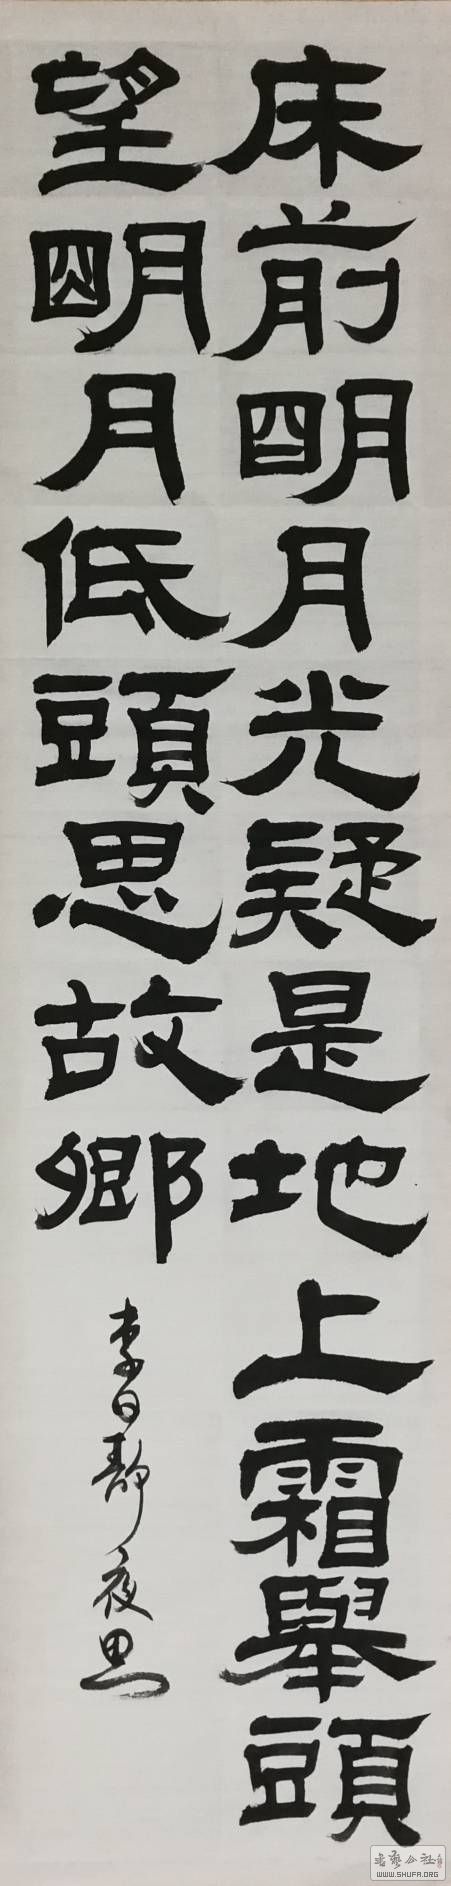 床前明月光疑是地上霜舉頭
望明月低頭思故鄉
李白靜夜思
WWW.SHUFA.ORG